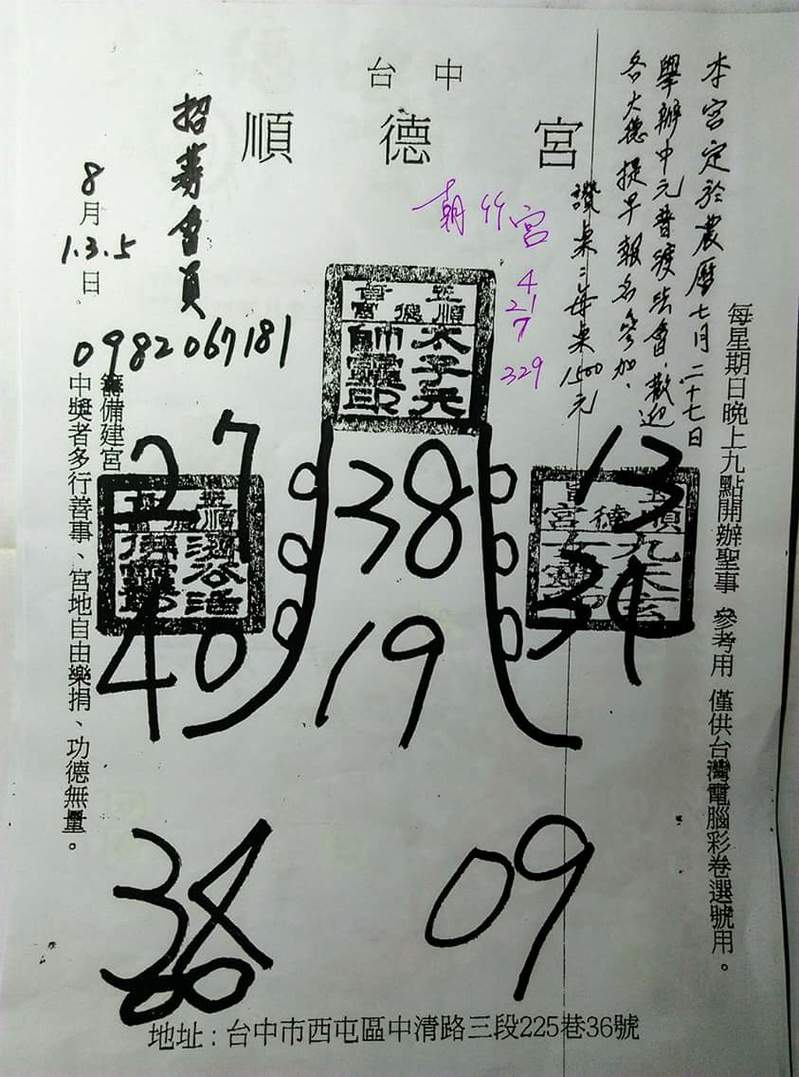 台中
順德宮
本宮定於農曆七月二十七日
舉辦中元普渡法會.歡迎
各大德提早報名參加.
讚桌:每桌1500元
每星期日晚上九點開辦聖事 參考用 僅供台灣電腦彩卷選號用。
招募會員
8月1.3.5日
0982067181
籌備建宮
中獎者多行善事、宮地自由樂捐、功德無量。
朝竹宮
4
21
7
329
順德宮
太子元帥靈印
27
38
13
40
19
34
09
地址:台中市西屯區中清路三段225巷36號